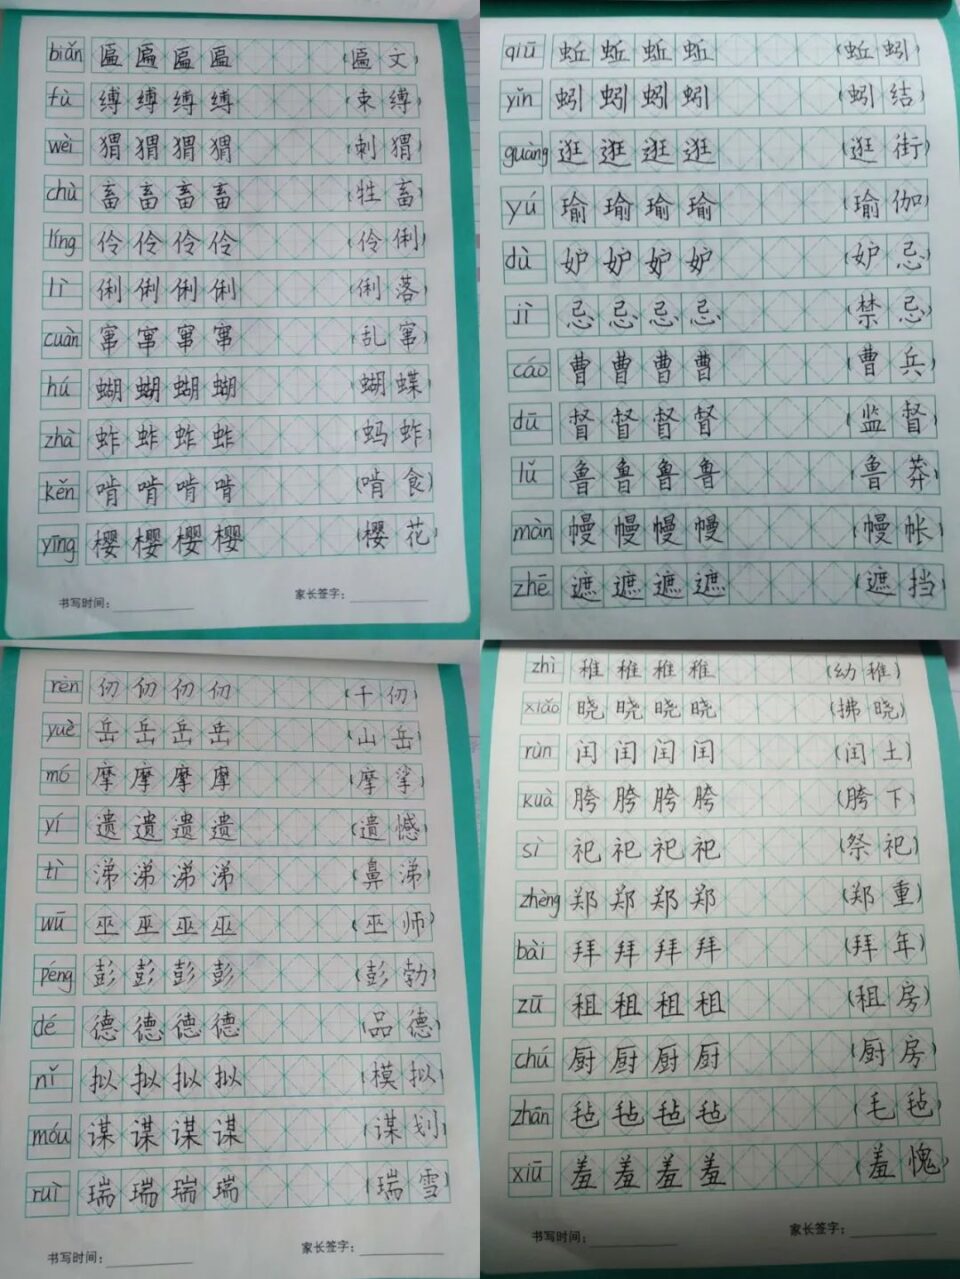 biǎn 匾 匾 匾 匾 (匾 文)
fù 缚 缚 缚 缚 (束 缚)
wèi 猬 猬 猬 猬 (刺 猬)
chù 畜 畜 畜 畜 (牲 畜)
líng 伶 伶 伶 伶 (伶 俐)
lì 俐 俐 俐 俐 (俐 落)
cuàn 窜 窜 窜 窜 (乱 窜)
hú 蝴 蝴 蝴 蝴 (蝴 蝶)
zhà 蚱 蚱 蚱 蚱 (蚂 蚱)
kěn 啃 啃 啃 啃 (啃 食)
yīng 樱 樱 樱 樱 (樱 花)
书写时间: 家长签字:
qiū 蚯 蚯 蚯 蚯 (蚯 蚓)
yǐn 蚓 蚓 蚓 蚓 (蚓 结)
guàng 逛 逛 逛 逛 (逛 街)
yú 瑜 瑜 瑜 瑜 (瑜 伽)
dù 妒 妒 妒 妒 (妒 忌)
jì 忌 忌 忌 忌 (禁 忌)
cáo 曹 曹 曹 曹 (曹 兵)
dū 督 督 督 督 (监 督)
lǔ 鲁 鲁 鲁 鲁 (鲁 莽)
màn 幔 幔 幔 幔 (幔 帐)
zhē 遮 遮 遮 遮 (遮 挡)
rèn 仞 仞 仞 仞 (千 仞)
yuè 岳 岳 岳 岳 (山 岳)
mó 摩 摩 摩 摩 (摩 挲)
yí 遗 遗 遗 遗 (遗 憾)
tì 涕 涕 涕 涕 (鼻 涕)
wū 巫 巫 巫 巫 (巫 师)
péng 彭 彭 彭 彭 (彭 勃)
dé 德 德 德 德 (品 德)
nǐ 拟 拟 拟 拟 (模 拟)
móu 谋 谋 谋 谋 (谋 划)
ruì 瑞 瑞 瑞 瑞 (瑞 雪)
书写时间: 家长签字:
zhì 稚 稚 稚 稚 (幼 稚)
xiǎo 晓 晓 晓 晓 (拂 晓)
rùn 闰 闰 闰 闰 (闰 土)
kuà 胯 胯 胯 胯 (胯 下)
sì 祀 祀 祀 祀 (祭 祀)
zhèng 郑 郑 郑 郑 (郑 重)
bài 拜 拜 拜 拜 (拜 年)
zū 租 租 租 租 (租 房)
chú 厨 厨 厨 厨 (厨 房)
zhān 毡 毡 毡 毡 (毛 毡)
xiū 羞 羞 羞 羞 (羞 愧)
书写时间: 家长签字: